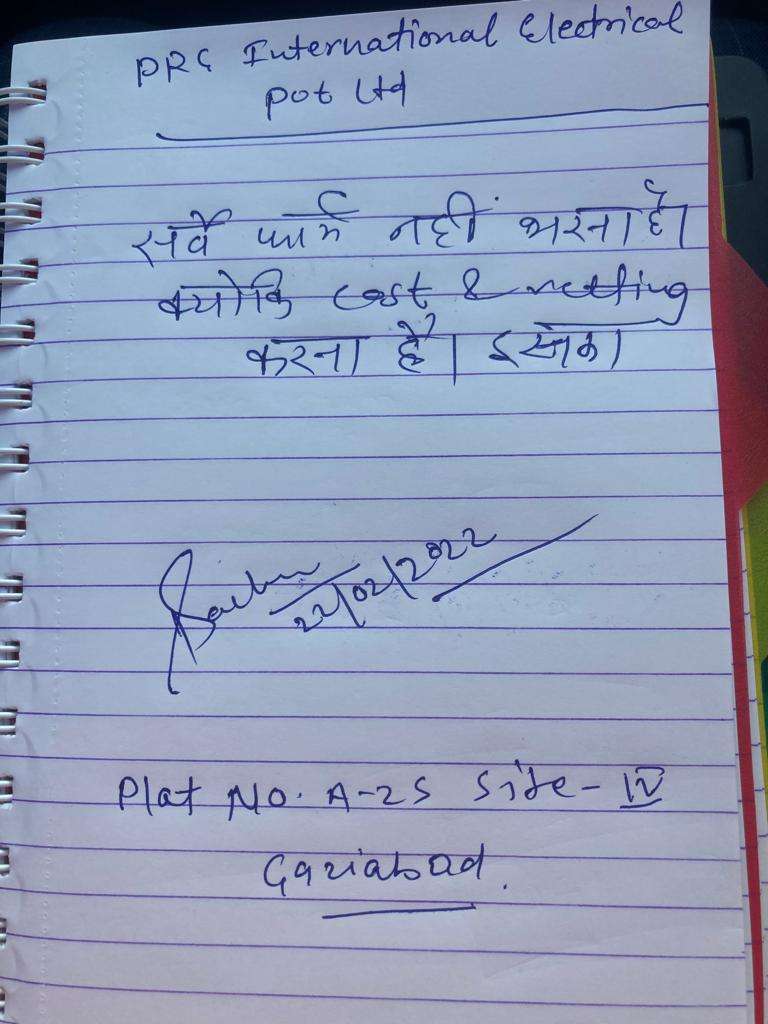 PRG International Electrical
Pvt Ltd
सर्वे फार्म नहीं भरना है।
क्योकि cost & netting
करना है। इसका
22/02/2022
Plat No. A-25 Site - IV
Gaziabad.